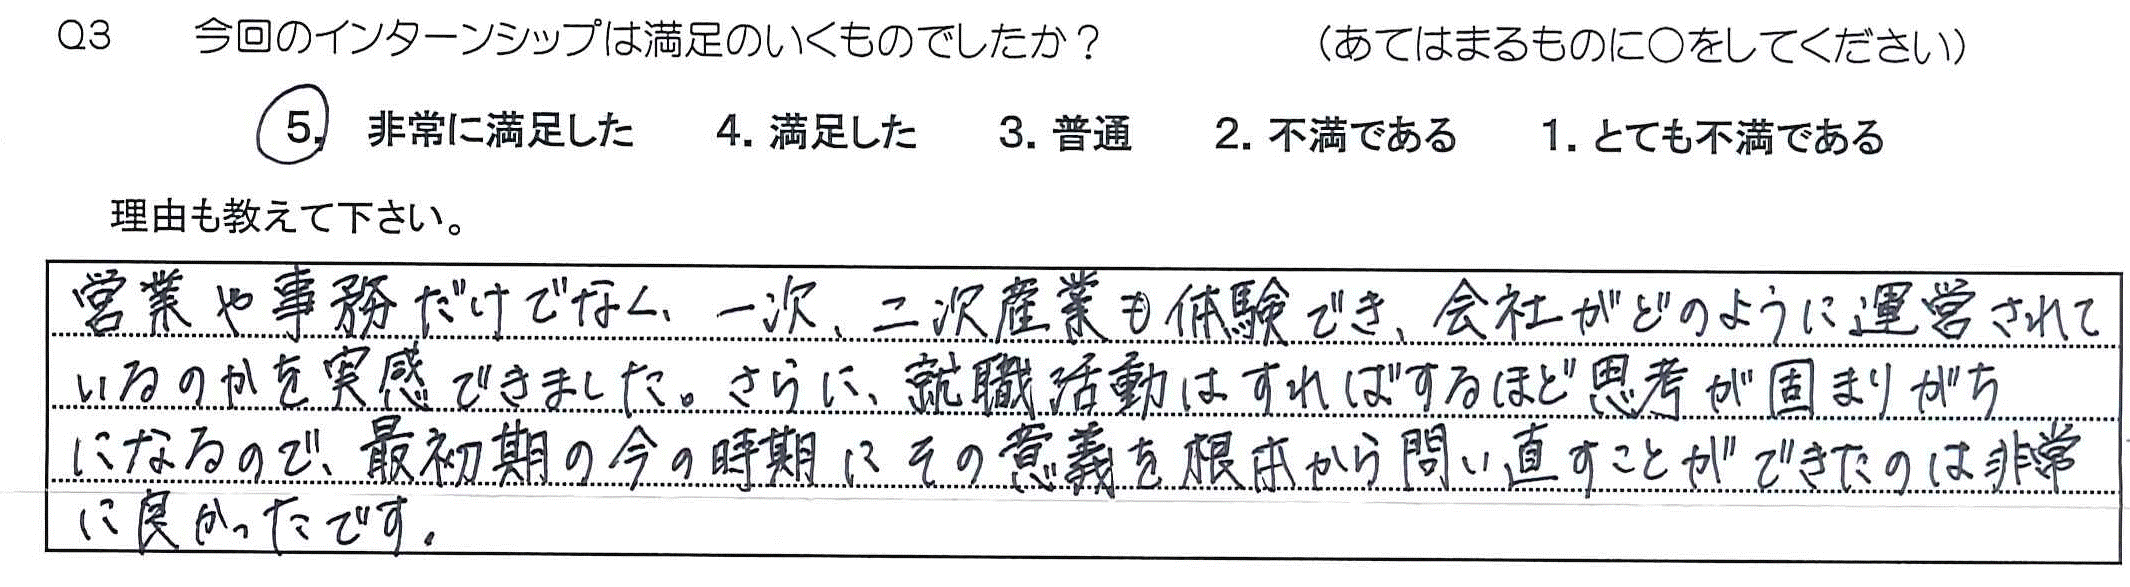 Q3 今回のインターンシップは満足のいくものでしたか？ （あてはまるものに○をしてください）
5. 非常に満足した 4. 満足した 3. 普通 2. 不満である 1. とても不満である
理由も教えて下さい。
営業や事務だけでなく、一次、二次産業も体験でき、会社がどのように運営されて
いるのかを実感できました。さらに、就職活動はすればするほど思考が固まりがち
になるので、最初期の今の時期にその意義を根本から問い直すことができたのは非常
に良かったです。